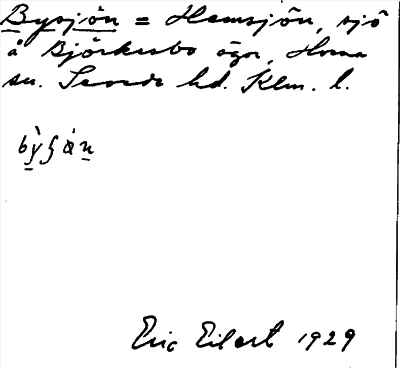 Bysjön = Hemsjön, sjö
å Björkesbo ägor, Horna
sn. Sevede hd. Klm. l.
bỳʃǻn
Eric Eilert 1929